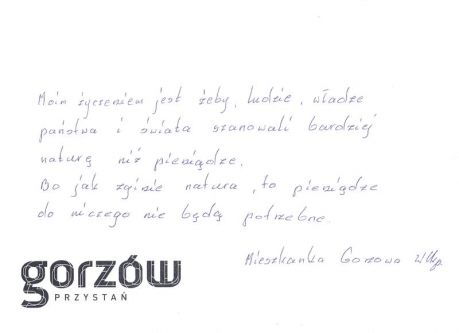 Moim życzeniem jest żeby, ludzie, władze
państwa i świata szanowali bardziej
naturę niż pieniądze.
Bo jak zginie natura, to pieniądze
do niczego nie będą potrzebne.
Mieszkanka Gorzowa Wlkp.
gorzów
PRZYSTAŃ